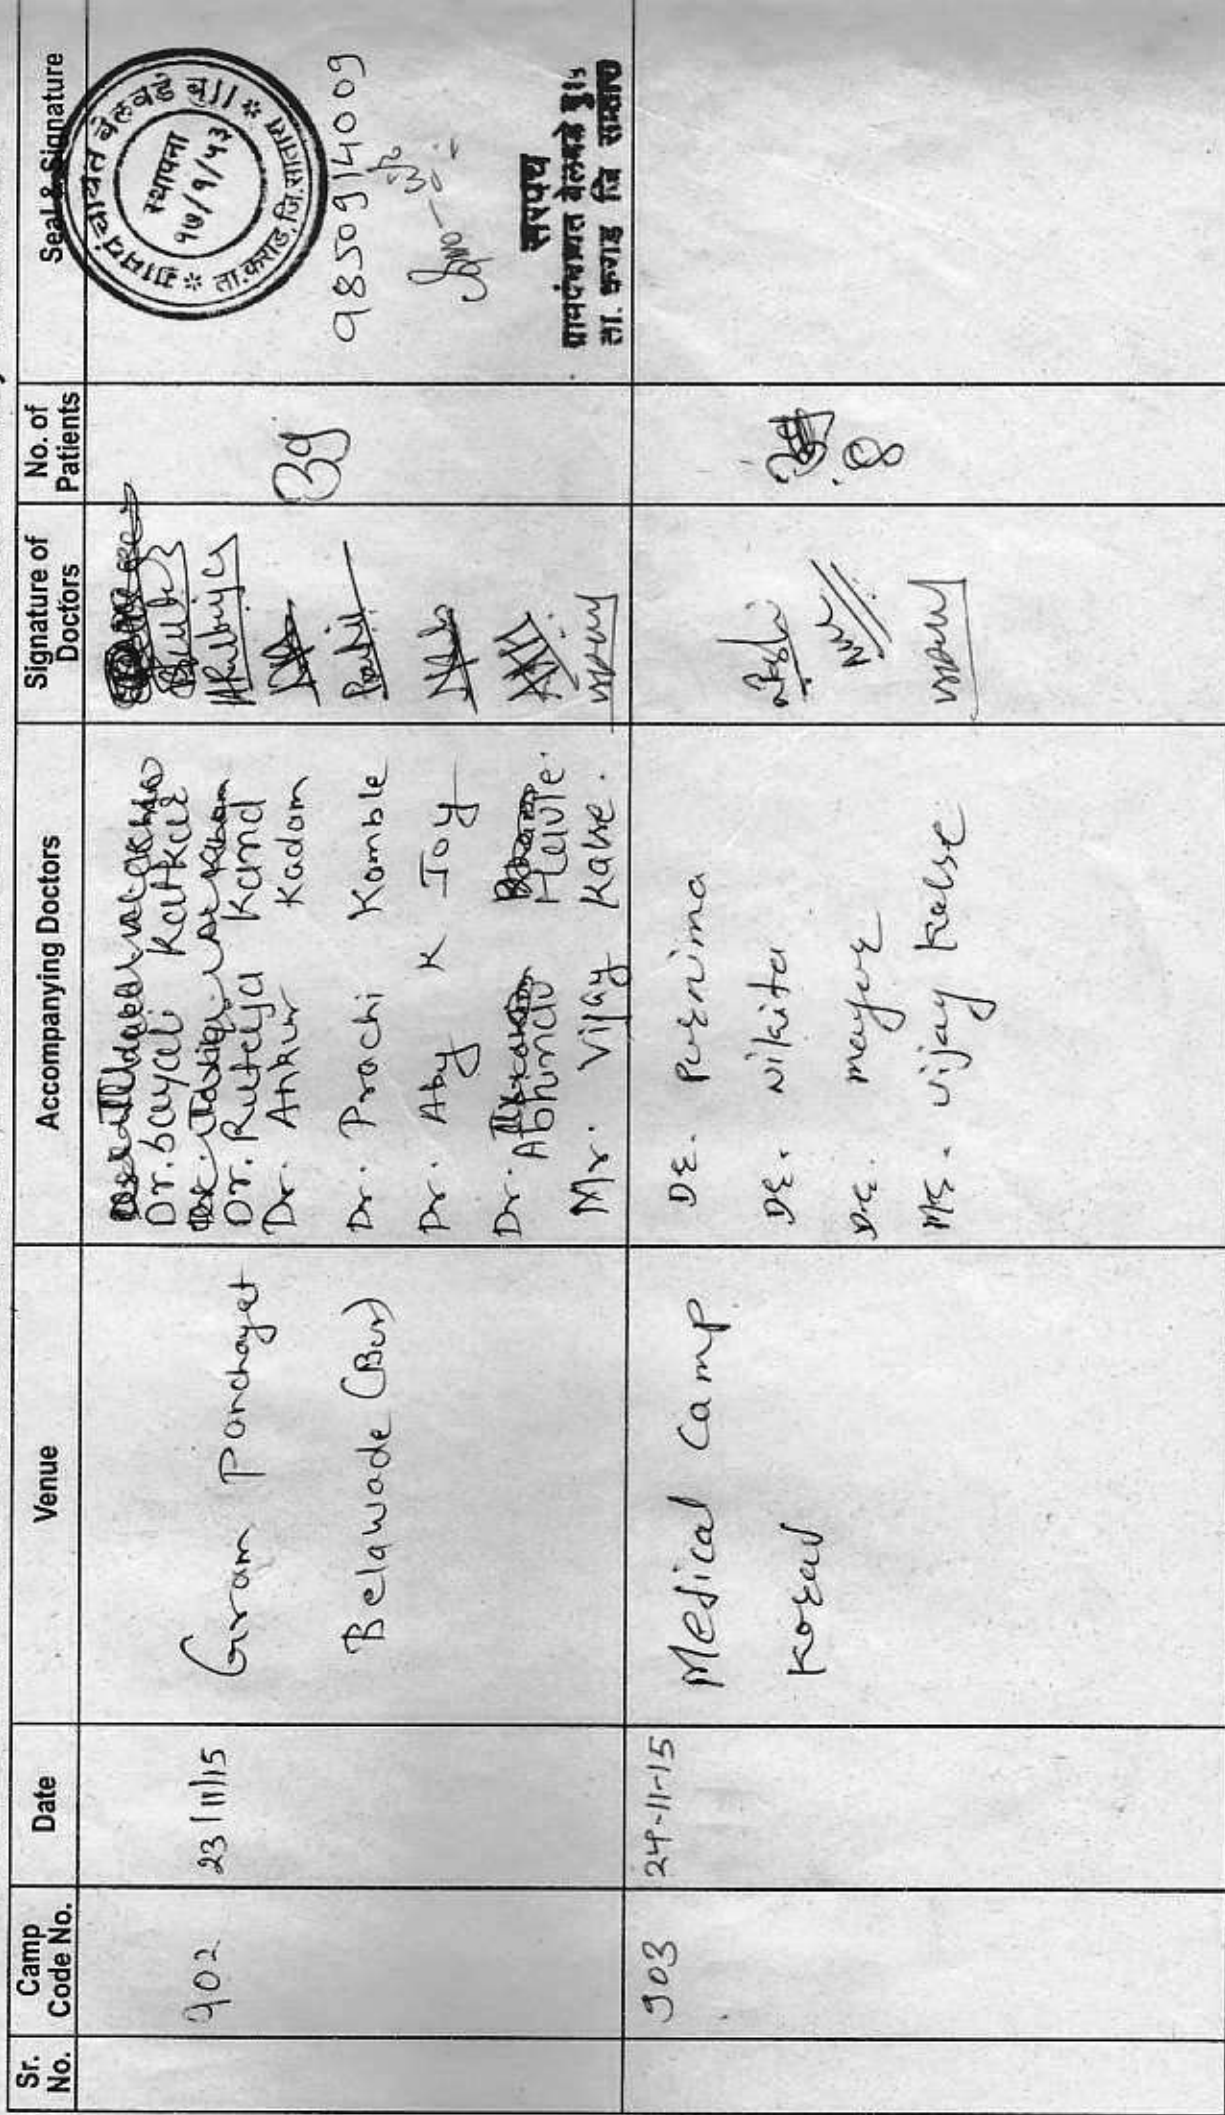 Sr. No.
Camp Code No.
Date
Venue
Accompanying Doctors
Signature of Doctors
No. of Patients
Seal & Signature
902
23/11/15
Gram Panchayat
Belawade (Bur)
Dr. Sayali Katkar
Dr. Rutuja Kand
Dr. Ankur Kadam
Dr. Prachi Kamble
Dr. Aby K Joy
Dr. Abhinandu Helvie.
Mr. Vijay Kalse.
39
ग्रामपंचायत बेलवडे बु।।
स्थापना
१७/१/५३
ता.कराड,जि.सातारा
9850914009
सरपंच
ग्रामपंचायत बेलवडे बुद्रुक
ता. कराड जि सातारा
903
24-11-15
Medical Camp
Karad
Dr. Purnima
Dr. Nikita
Dr. Mayur
Mr. Vijay Kalse
8